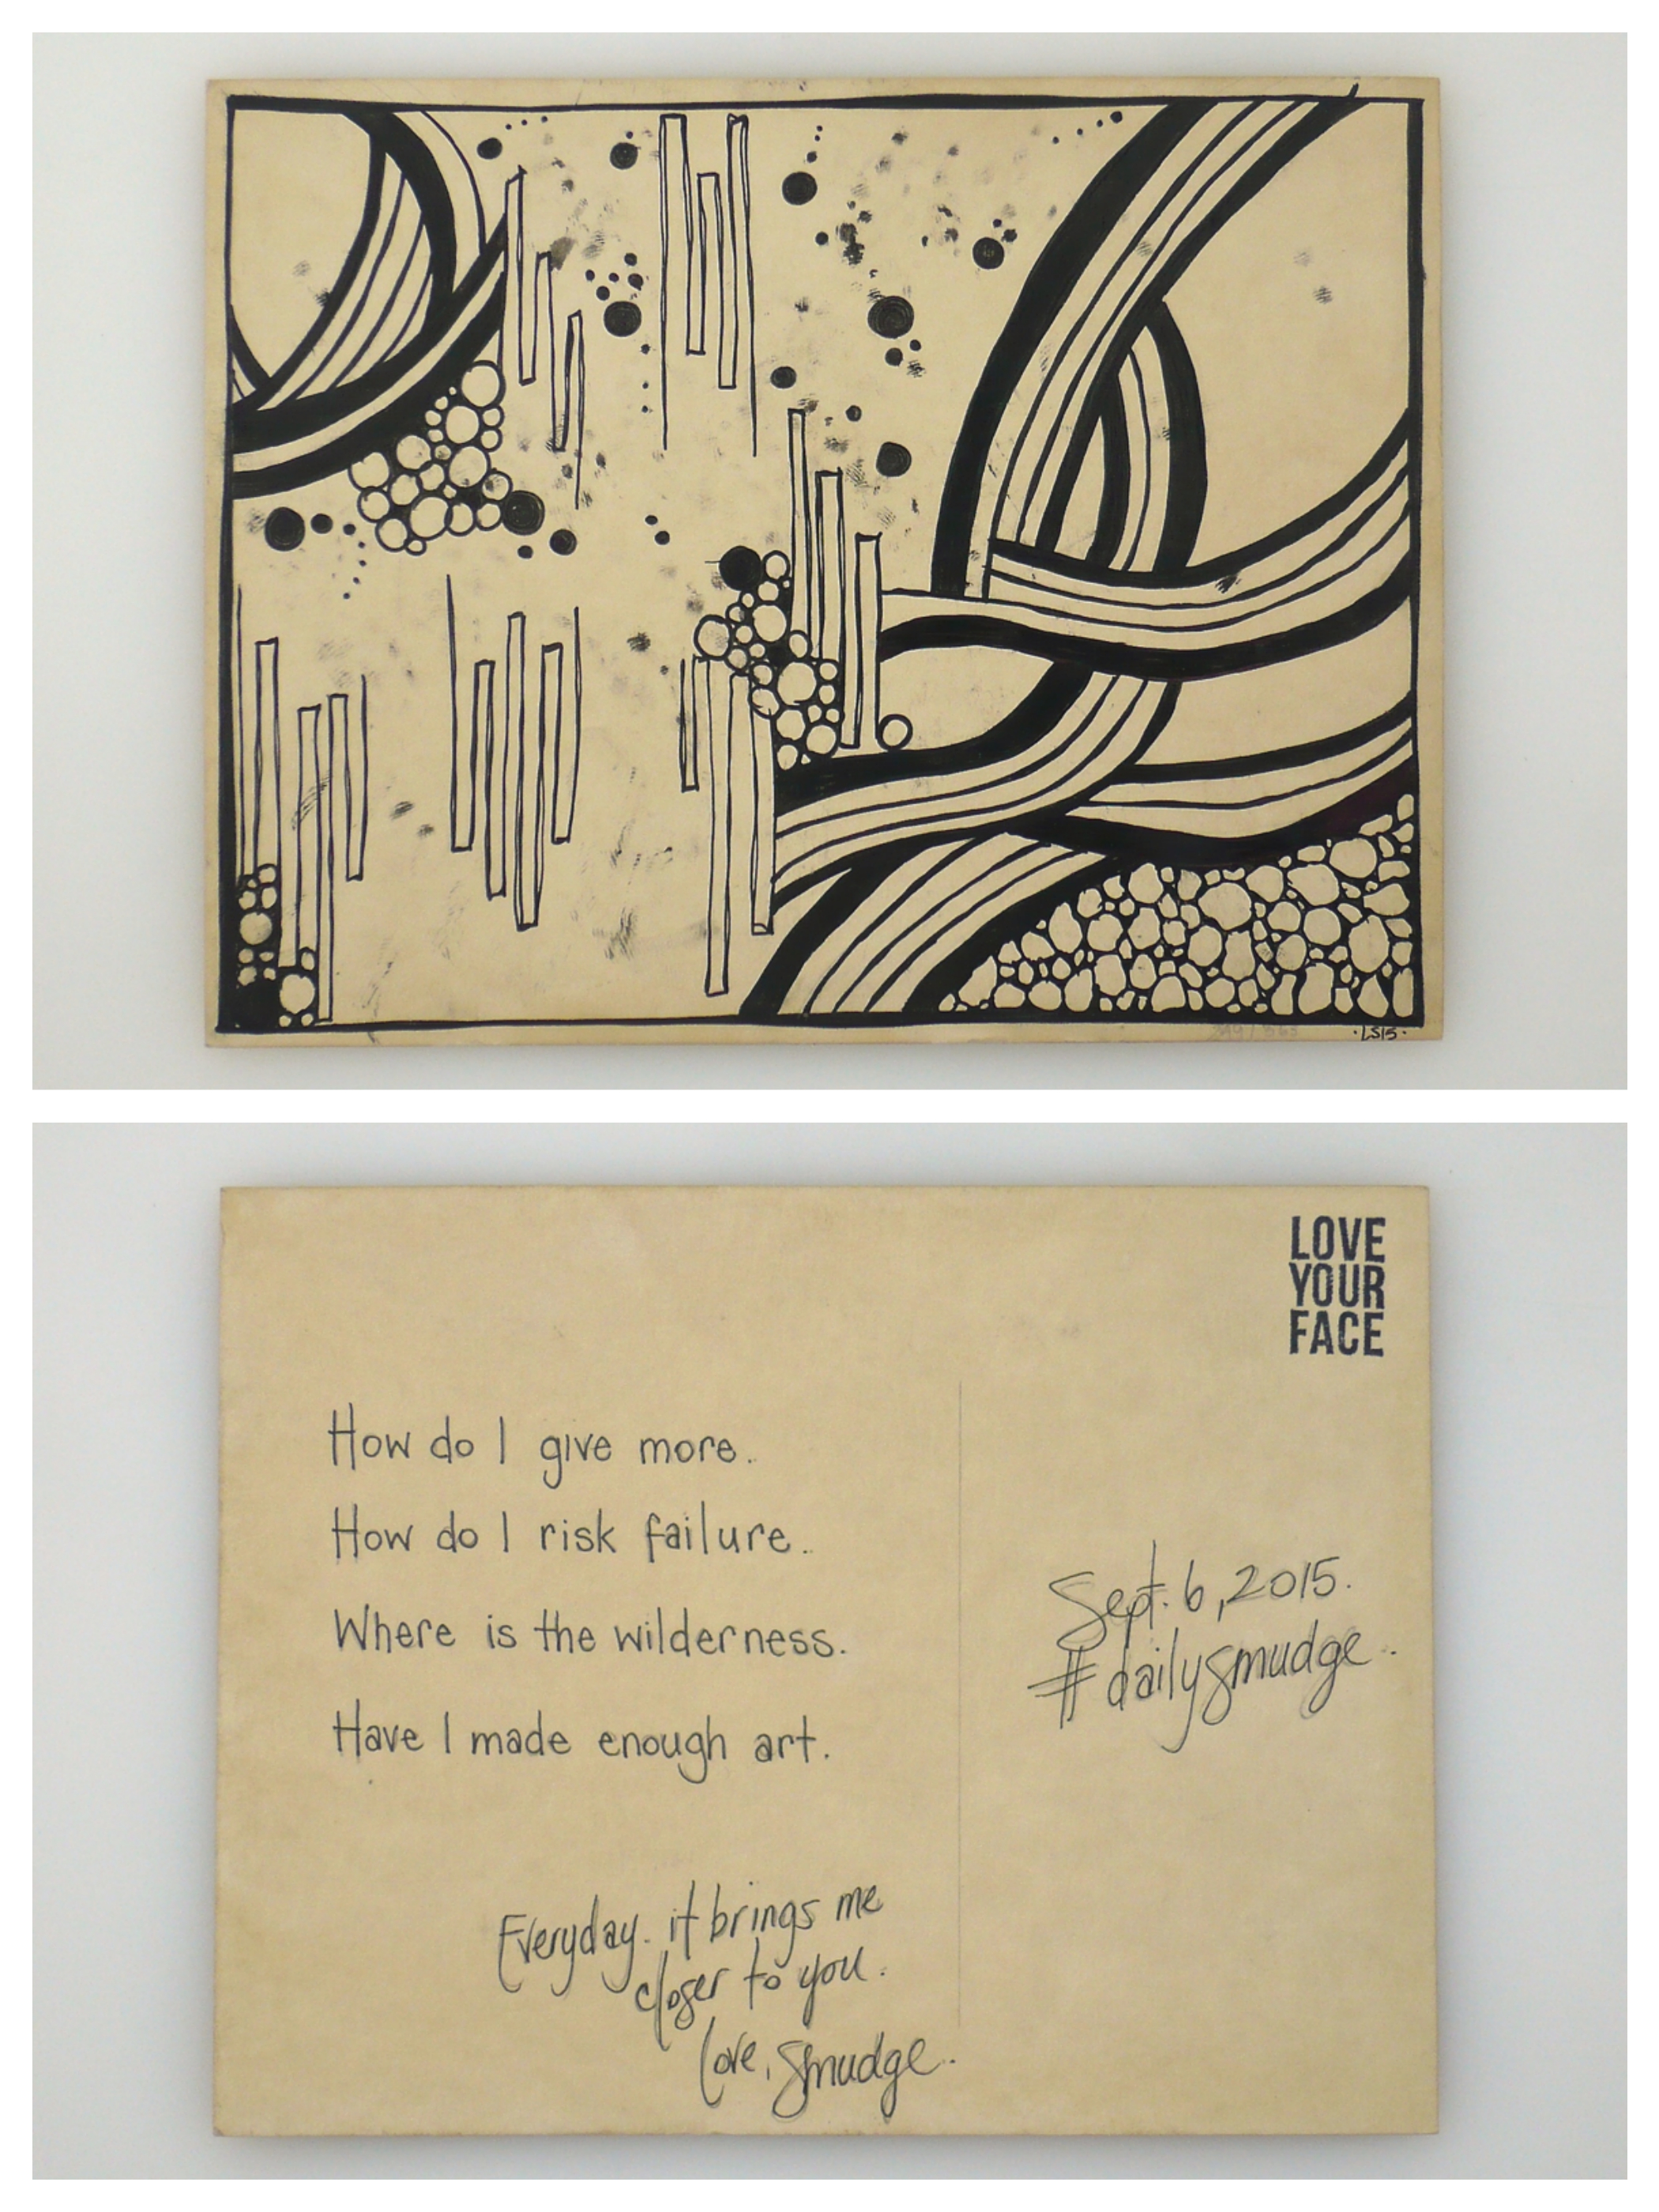 ·LS15·
LOVE
YOUR
FACE
How do I give more.
How do I risk failure.
Where is the wilderness.
Have I made enough art.
Sept. 6, 2015.
#dailysmudge.
Everyday. it brings me
closer to you.
love, smudge.